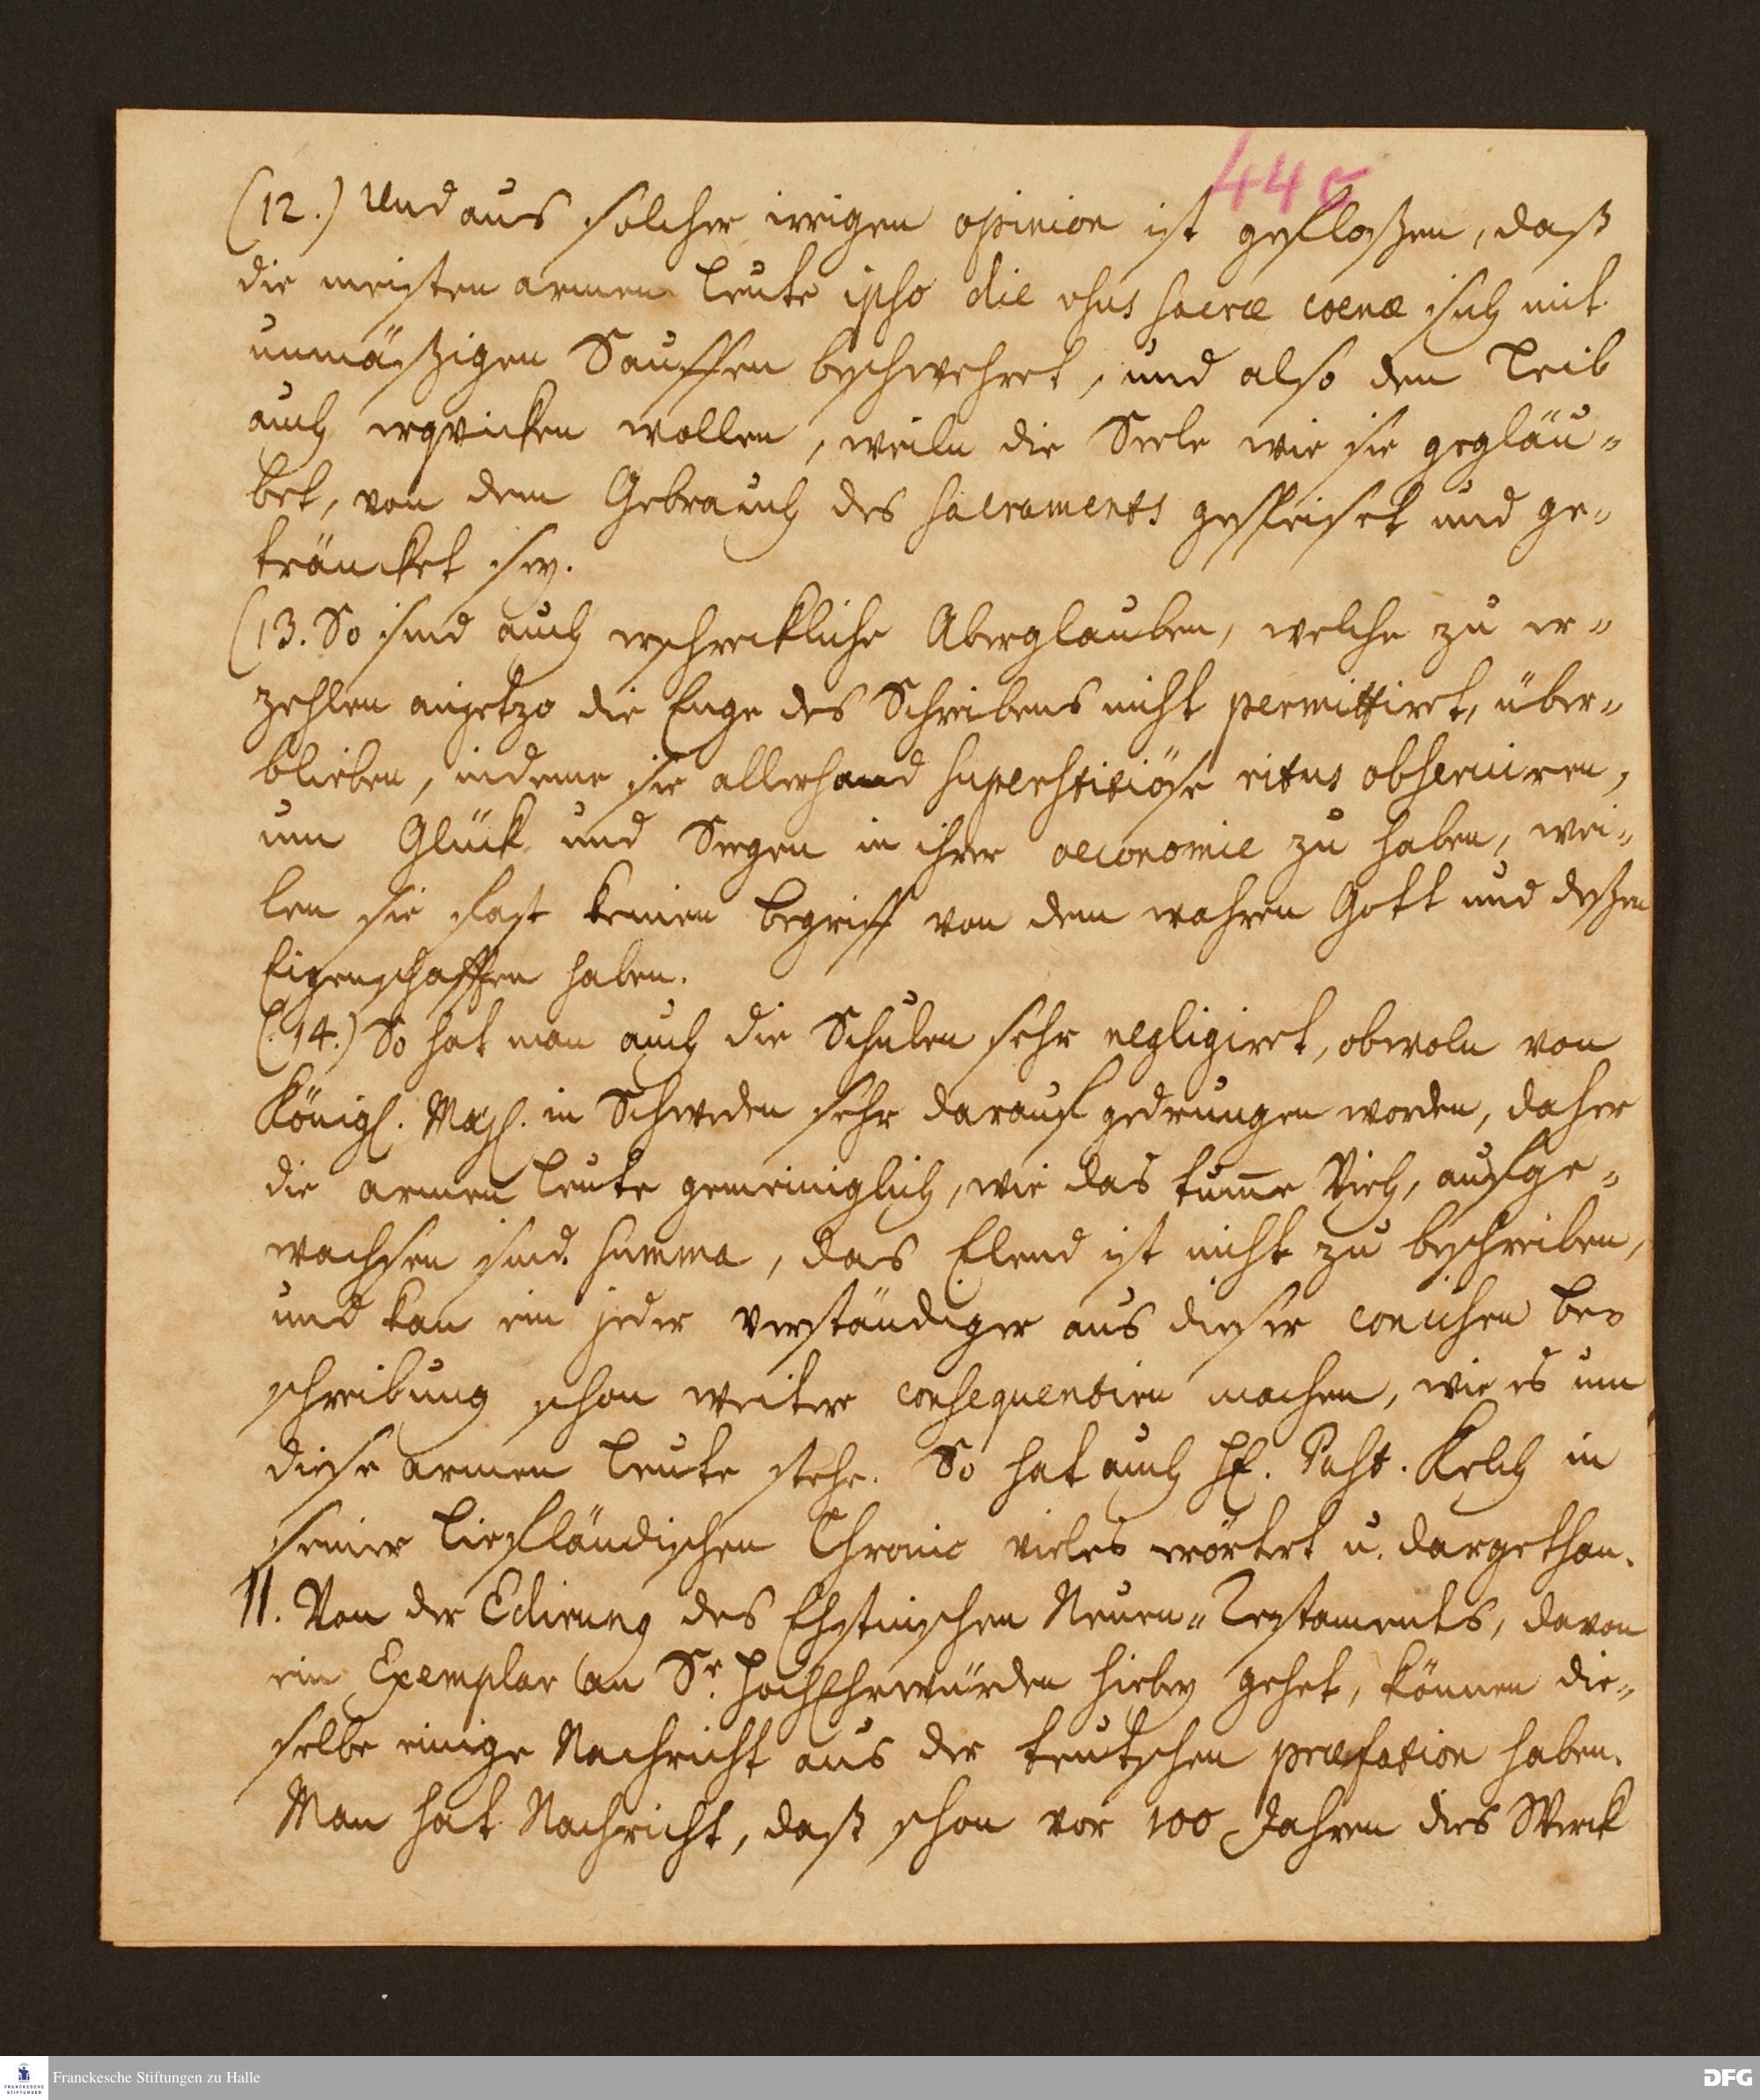 44c
(12.) Und aus solcher irrigen opinion ist gefloßen, daß
die meisten armen Leute ipso die usus sacræ coenæ sich mit
unmäßigen Sauffen beschwehret, und also den Leib
auch erqvicken wollen, weiln die Seele wie sie gegläu-
bet, von dem Gebrauch des sacraments gespeiset und ge-
träncket sey.
(13. So sind auch erschreckliche Aberglauben, welche zu er-
zehlen anjetzo die Enge des Schreibens nicht permittiret, über-
blieben, indeme sie allerhand superstitiöse ritus observiren,
um Glück und Seegen in ihrer oeconomie zu haben, wei-
len sie fast keinen begriff von dem wahren Gott und deßen
Eigenschafften haben.
(14.) So hat man auch die Schulen sehr negligiret, obwoln von
Königl. Maj. in Schweden sehr darauf gedrungen worden, daher
die armen Leute gemeiniglich, wie das tum̅e Vieh, aufge-
wachsen sind. Summa, das Elend ist nicht zu beschreiben,
und kan ein jeder verständiger aus dieser concisen be-
schreibung schon weitere consequentien machen, wie es um
diese armen Leute stehe. So hat auch H. Past. Kelch in
seiner Liefländischen Chronic vieles erörtert u. dargethan.
II. Von der Edirung des Ehstnischen Neuen-Testaments, davon
ein Exemplar an Sr. HochEhrwürden hiebey gehet, können die-
selbe einige Nachricht aus der teutschen præfation haben.
Man hat Nachricht, daß schon vor 100 Jahren dies Werck
Franckesche Stiftungen zu Halle
FRANCKESCHE
STIFTUNGEN
DFG